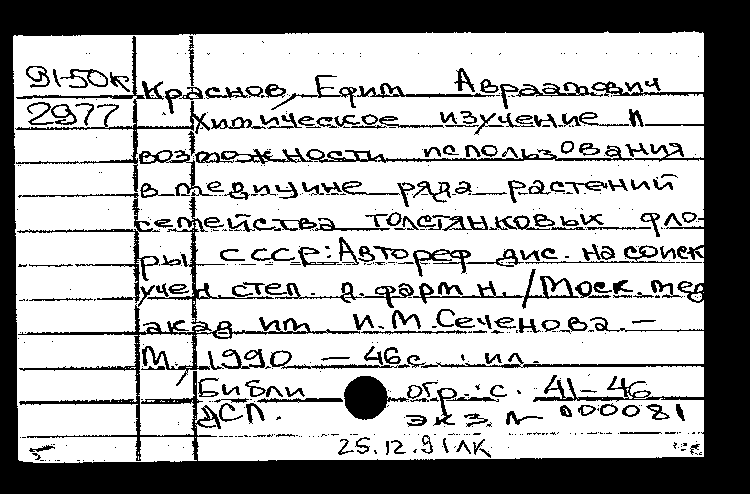 91-50к Краснов, Ефим Авраамович
2977 Химическое изучение и
возможности использования
в медицине ряда растений
семейства толстянковых фло-
ры СССР: Автореф дис. на соиск
учен. степ. д. фарм н. / Моск. мед
акад им. И.М. Сеченова. —
М., 1990 — 46с : ил.
Библи огр.: с. 41-46
ДСП. экз. № 000081
25.12.91 ЛК